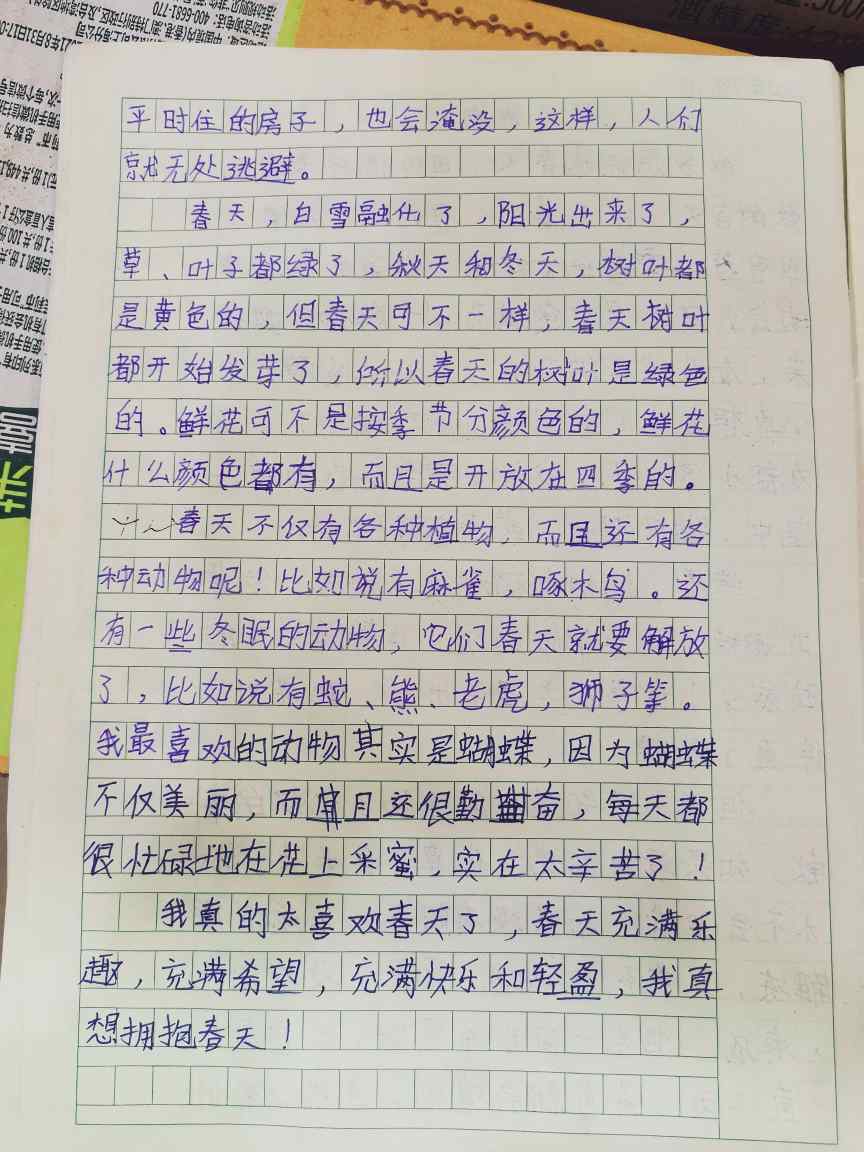 平时住的房子，也会淹没，这样，人们
就无处逃避。
春天，白雪融化了，阳光出来了，
草、叶子都绿了，秋天和冬天，树叶都
是黄色的，但春天可不一样，春天树叶
都开始发芽了，所以春天的树叶是绿色
的。鲜花可不是按季节分颜色的，鲜花
什么颜色都有，而且是开放在四季的。
春天不仅有各种植物，而且还有各
种动物呢！比如说有麻雀，啄木鸟。还
有一些冬眠的动物，它们春天就要解放
了，比如说有蛇、熊、老虎，狮子等。
我最喜欢的动物其实是蝴蝶，因为蝴蝶
不仅美丽，而且还很勤奋，每天都
很忙碌地在花上采蜜，实在太辛苦了！
我真的太喜欢春天了，春天充满乐
趣，充满希望，充满快乐和轻盈，我真
想拥抱春天！